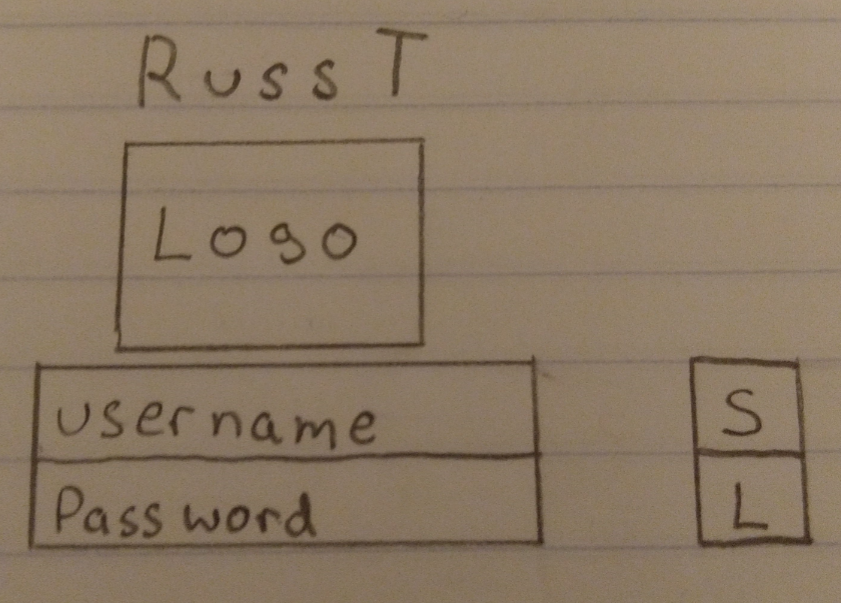 Russ T
Logo
username S
Password L